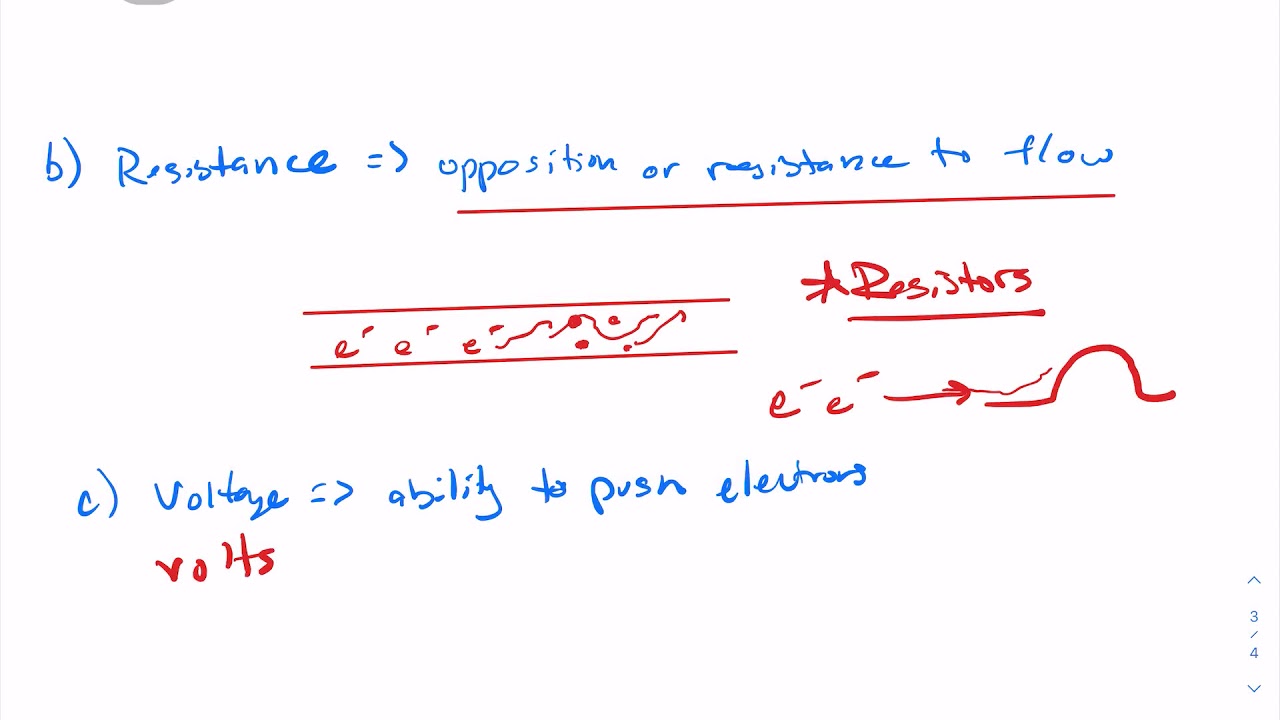 b) Resistance => opposition or resistance to flow
*Resistors
e⁻ e⁻ e⁻
e⁻ e⁻
c) Voltage => ability to push electrons
volts
3
/
4